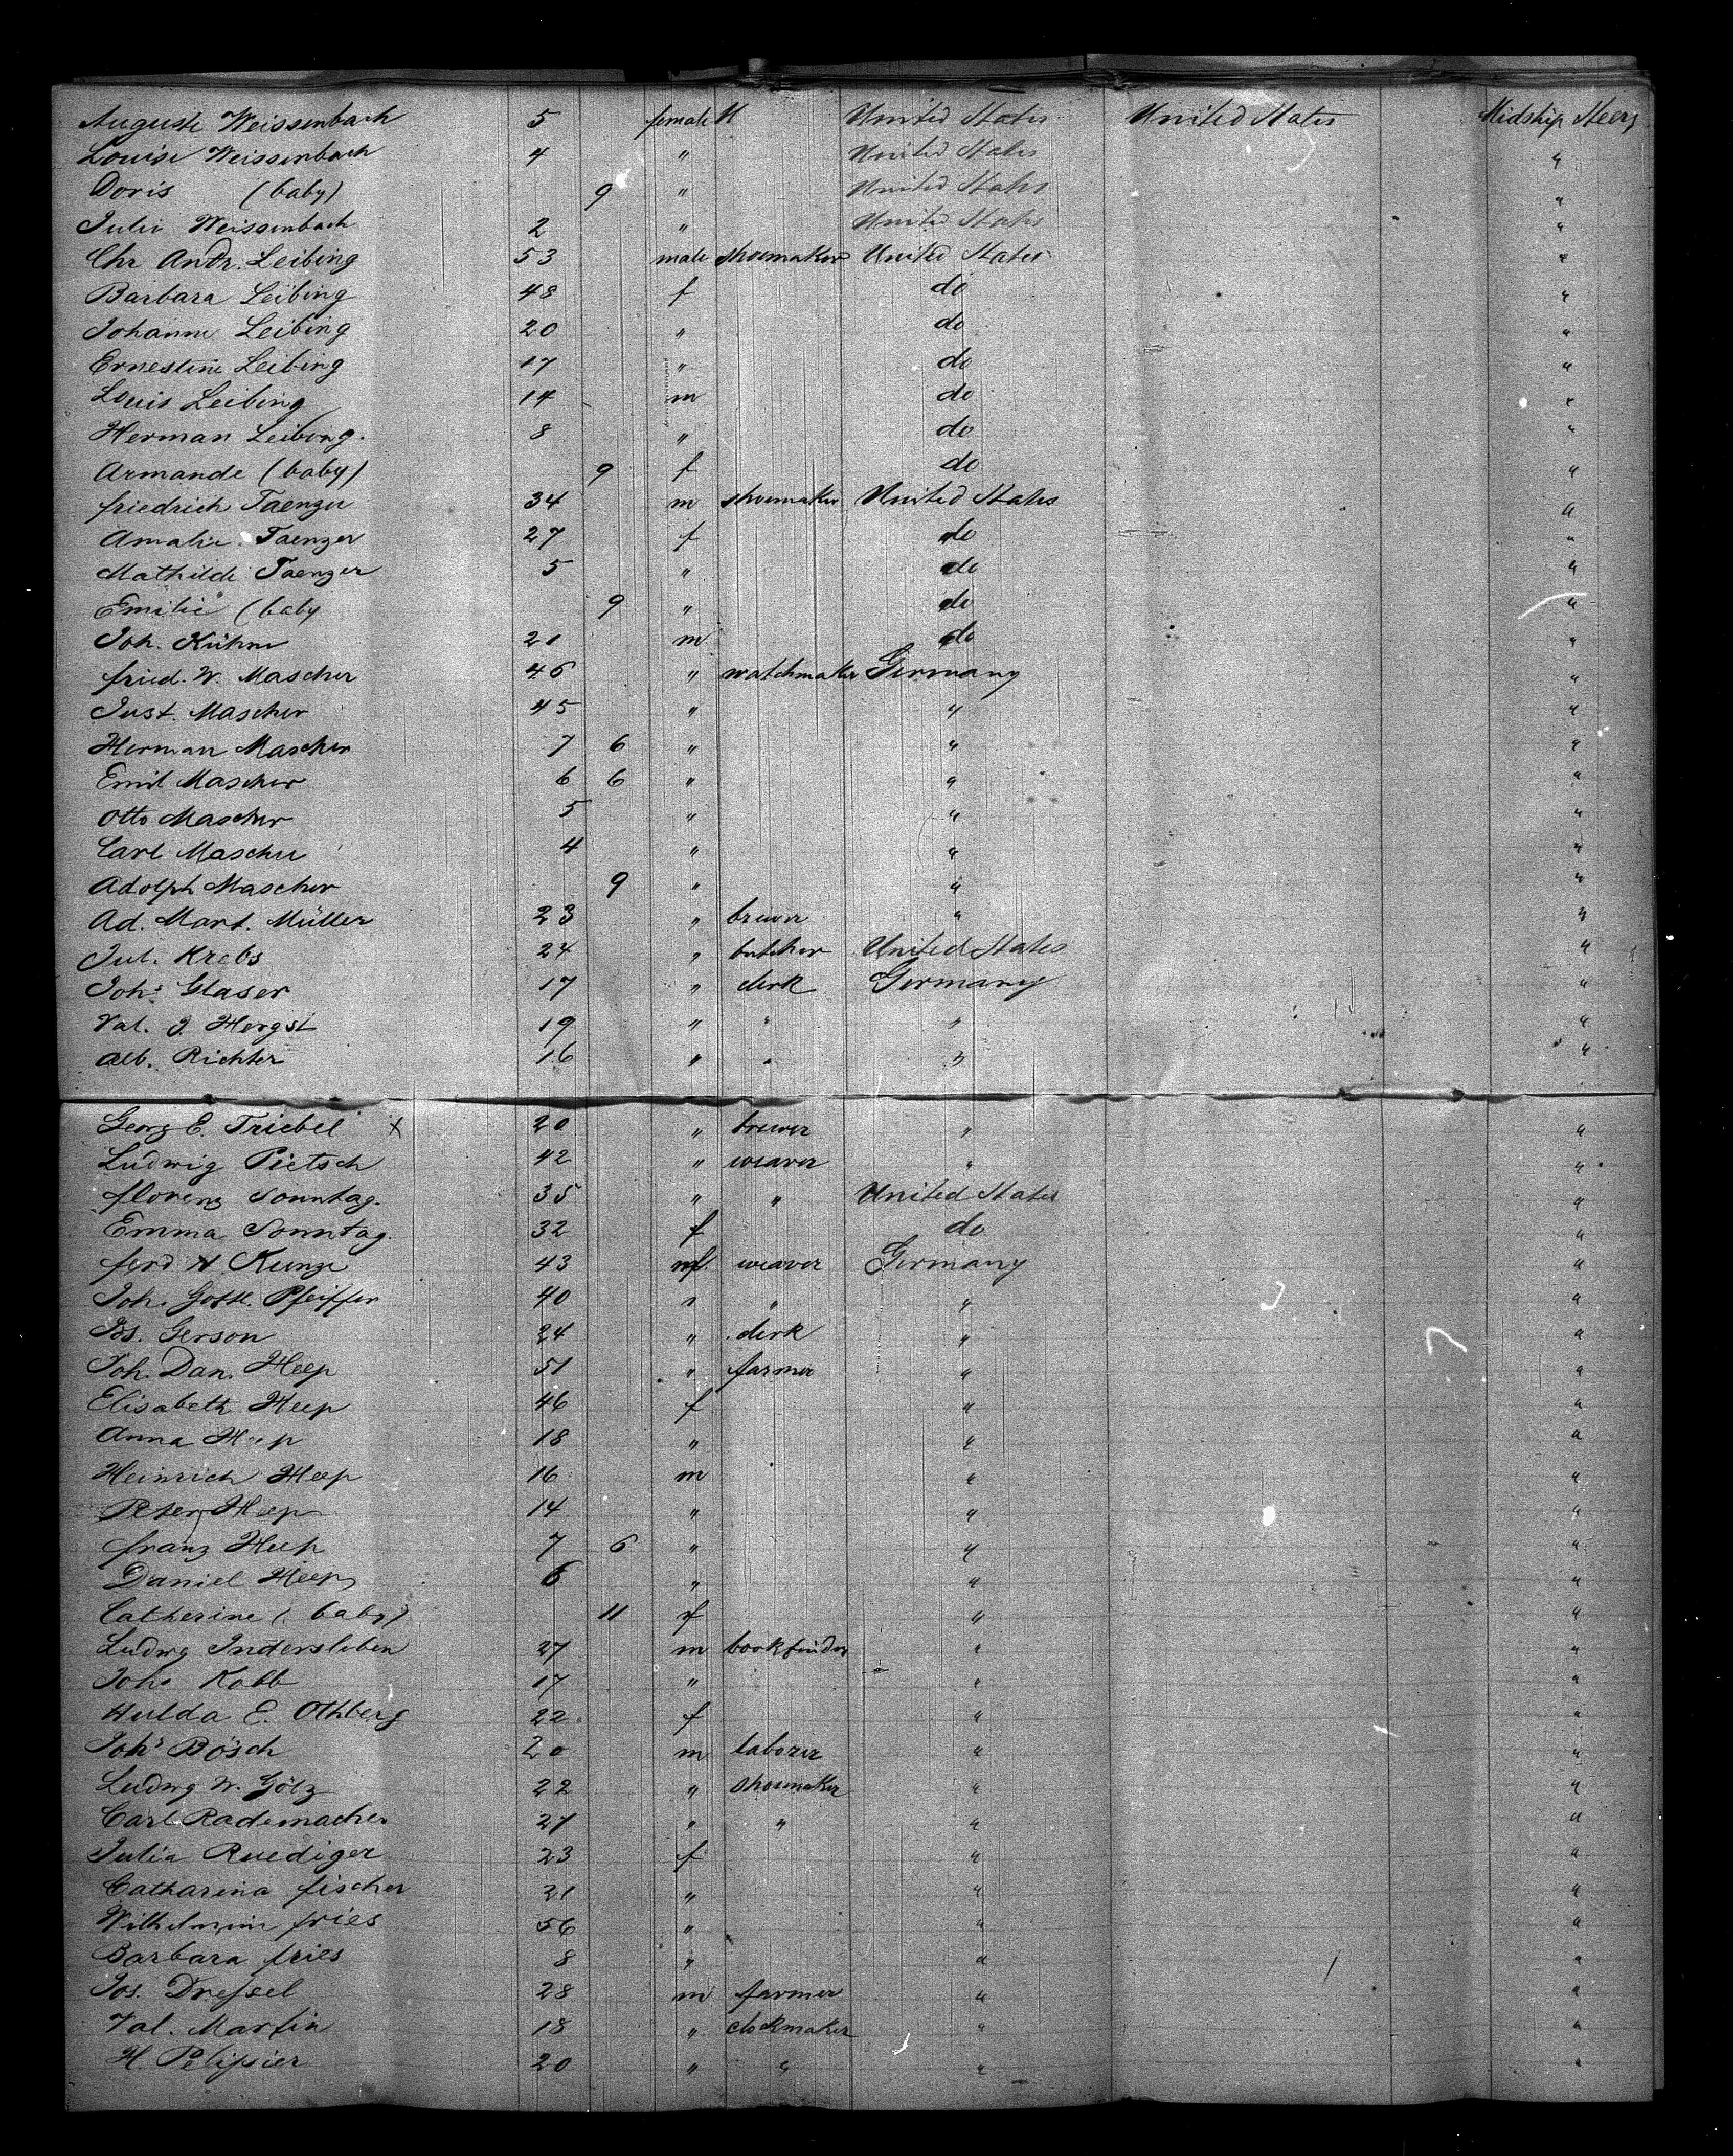 Auguste Weissenbach 5 female " United States United States Midship Steerg
Louise Weissenbach 4 " United States "
Doris (baby) 9 " United States "
Julie Weissenbach 2 " United States "
Chr Andr. Leibing 53 male shoemaker United States "
Barbara Leibing 48 f do "
Johanne Leibing 20 " do "
Ernestine Leibing 17 " do "
Louis Leibing 14 m do "
Herman Leibing. 8 " do "
Armande (baby) 9 f do "
friedrich Taenzer 34 m shoemaker United States "
Amalie Taenzer 27 f do "
Mathilde Taenzer 5 " do "
Emilie (baby 9 " do "
Joh. Kühne 21 m do "
fried. W. Mascher 46 " watchmaker Germany "
Just. Mascher 45 " " "
Herman Mascher 7 6 " " "
Emil Mascher 6 6 " " "
Otto Mascher 5 " " "
Carl Mascher 4 " " "
Adolph Mascher 9 " " "
Ad. Mart. Müller 23 " brewer " "
Jul. Krebs 24 " butcher United States "
Joh. Glaser 17 " clerk Germany "
Val. J. Hergst 19 " " " "
Alb. Richter 16 " " " "
Georg E. Triebel x 20 " brewer " "
Ludwig Pietsch 42 " weaver " "
florenz Sonntag. 35 " " United States "
Emma Sonntag. 32 f do "
ferd Kunze 43 m weaver Germany "
Joh. Gottl. Pfeiffer 40 " " " "
Jos. Gerson 24 " clerk " "
Joh. Dan. Heep 51 " farmer " "
Elisabeth Heep 46 f " "
Anna Heep 18 " " "
Heinrich Heep 16 m " "
Peter Heep 14 " " "
franz Heep 7 6 " " "
Daniel Heep 6 " " "
Catherine (baby) 11 f " "
Ludwg Indersleben 27 m bookbinder " "
Joh. Kobb 17 " " "
Hulda E. Othberg 22 f " "
Joh. Bösch 20 m laborer " "
Ludwg W. Götz 22 " shoemaker " "
Carl Rademacher 27 " " " "
Julia Ruediger 23 f " "
Catharina fischer 21 " " "
Wilhelmine fries 56 " " "
Barbara fries 8 " " "
Jos. Dreſsel 28 m farmer " "
Val. Martin 18 " clockmaker " "
H. Peliſsier 20 " " " "